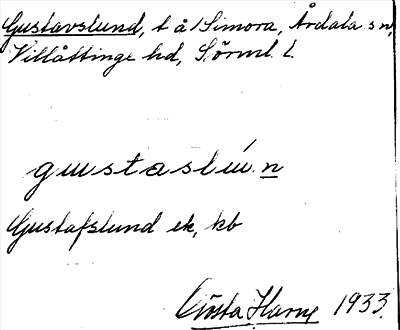 Gustavslund, t å Simora, Årdala sn,
Villåttinge hd, Sörml. l.
gustaslún
Gustafslund ek, kb
Gösta Harne 1933.